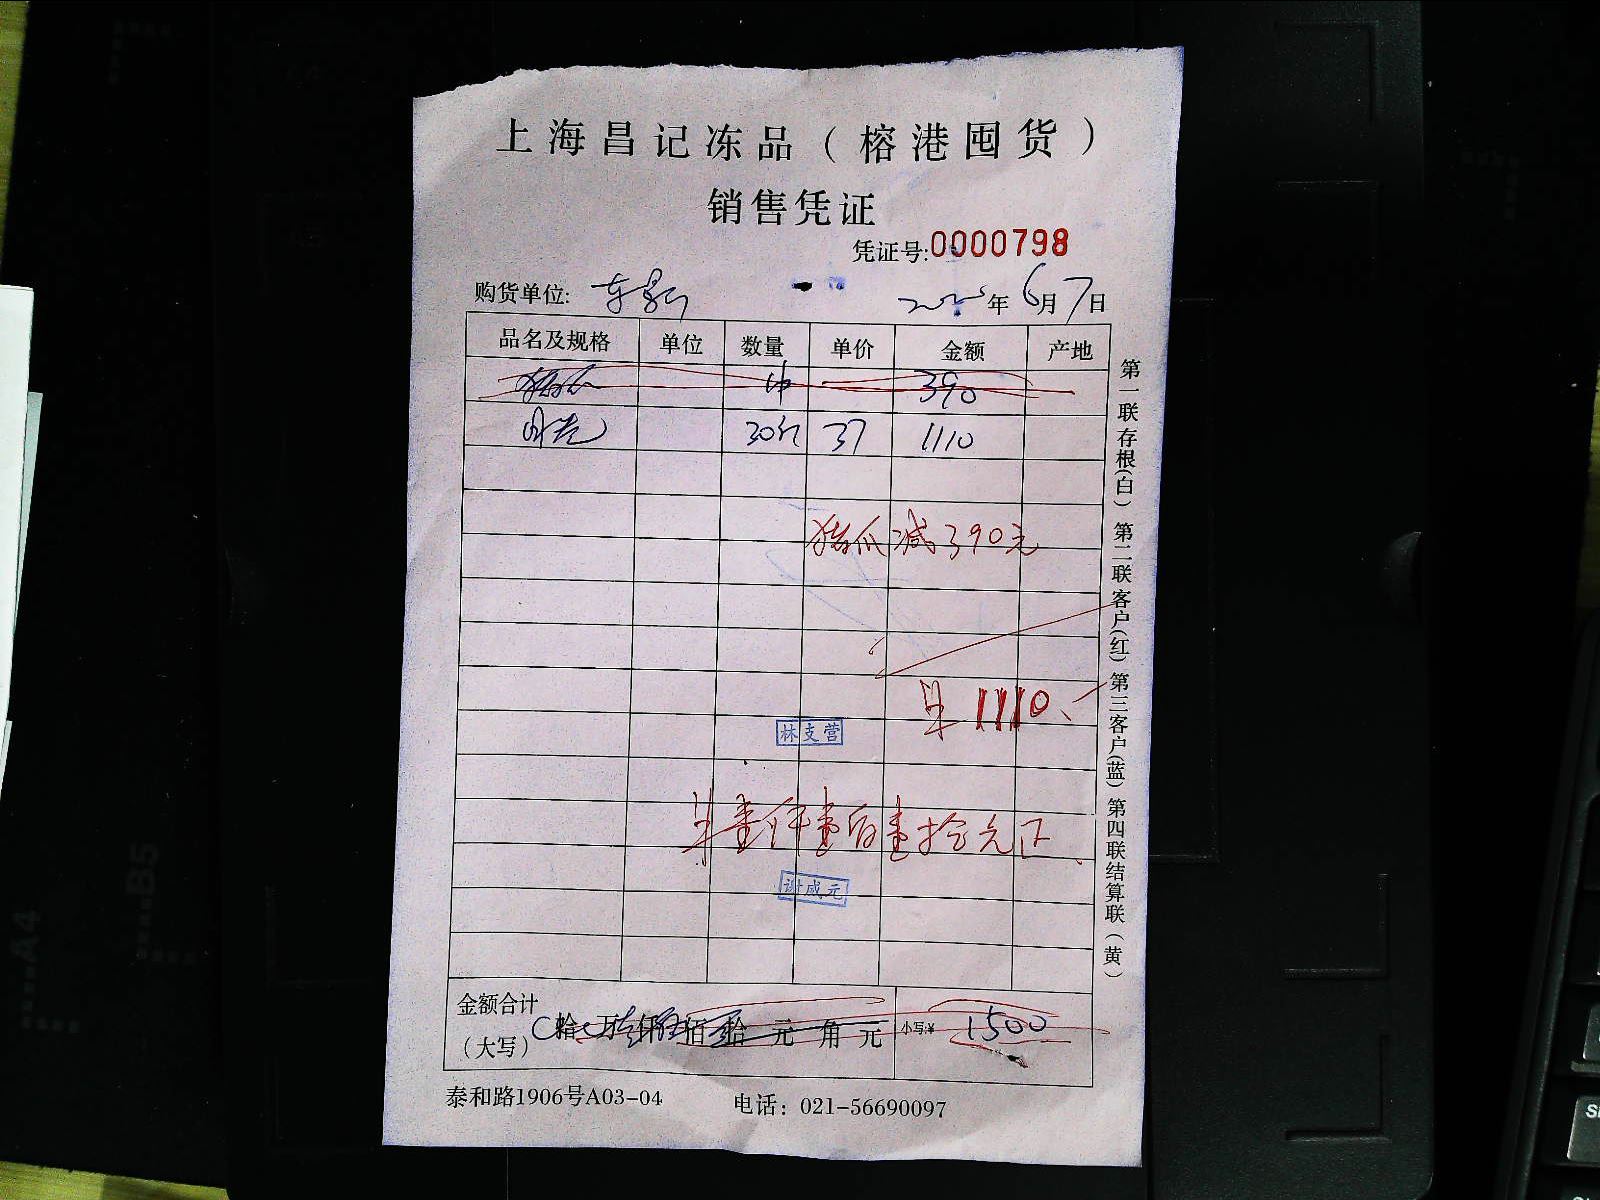 上海昌记冻品（榕港囤货）
销售凭证
凭证号:0000798
购货单位: 年6月7日
品名及规格 单位 数量 单价 金额 产地
390
30斤 37 1110
猪爪减390元
计1110.
林支营
计壹仟壹佰壹拾元正
谢咸元
金额合计（大写） 拾 万 仟 佰 拾 元 角 元 小写:¥ 1500
泰和路1906号A03-04 电话：021-56690097
第一联存根(白) 第二联客户(红) 第三客户(蓝) 第四联结算联（黄）
A4
B5